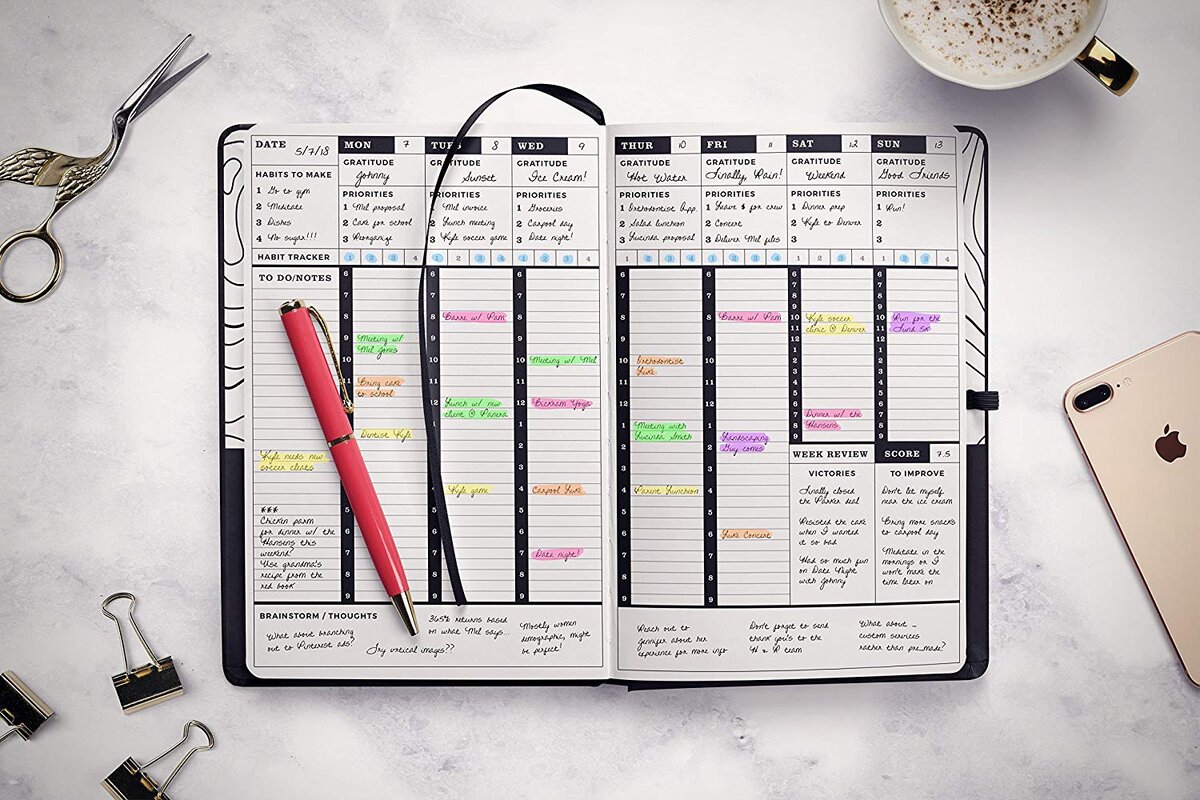 DATE 5/7/18
HABITS TO MAKE
1 Go to gym
2 Meditate
3 Dishes
4 No sugar!!!
HABIT TRACKER
TO DO/NOTES
Kyle needs new
soccer cleats
***
Chicken parm
for dinner w/ the
Hansens this
weekend?
Use grandma's
recipe from the
red book
MON 7
GRATITUDE
Johnny
PRIORITIES
1 Mel proposal
2 Cake for school
3 Reorganize
1 2 3 4
Meeting w/
Mel Jones
Bring cake
to school
Dentist Kyle
TUES 8
GRATITUDE
Sunset
PRIORITIES
1 Mel invoice
2 Lunch meeting
3 Kyle soccer game
1 2 3 4
6
7
8 Barre w/ Pam
9
10
11
12 Lunch w/ new
client @ Panera
1
4 Kyle game
7
8
9
WED 9
GRATITUDE
Ice Cream!
PRIORITIES
1 Groceries
2 Carpool day
3 Date night!
1 2 3 4
6
7
8
9
10 Meeting w/ Mel
11
12 Bickram Yoga
1
2
3
4 Carpool Luke
5
6
7 Date night!
8
9
THUR 10
GRATITUDE
Hot Water
PRIORITIES
1 Orthodontist App.
2 Salad luncheon
3 Lucinda proposal
1 2 3 4
6
7
8
9
10 Orthodontist
Luke
11
12
1 Meeting with
Lucinda Smith
2
3
4 Parent Luncheon
5
6
7
8
9
FRI 11
GRATITUDE
Finally Rain!
PRIORITIES
1 Leave $ for crew
2 Concert
3 Deliver Mel files
1 2 3 4
6
7
8 Barre w/ Pam
9
10
11
12
1
2 Landscaping
Guy comes
3
4
5
6 Luke Concert
7
8
9
SAT 12
GRATITUDE
Weekend
PRIORITIES
1 Dinner prep
2 Kyle to Denver
3
1 2 3 4
6
7
8
9
10 Kyle soccer
11 clinic @ Denver
12
1
2
3
4
5
6
7 Dinner w/ the
8 Hansens
9
SUN 13
GRATITUDE
Good Friends
PRIORITIES
1 Run!
2
3
1 2 3 4
6
7
8
9
10 Run for the
11 Fund 5K
12
1
2
3
4
5
6
7
8
9
WEEK REVIEW SCORE 7.5
VICTORIES
Finally closed
the Parker deal
Resisted the cake
when I wanted
it so bad
Had so much fun
on Date Night
with Johnny
TO IMPROVE
Don't let myself
near the ice cream
Bring more snacks
to carpool day
Meditate in the
mornings or I
won't make the
time later on
BRAINSTORM / THOUGHTS
What about branching
out to Pinterest ads?
Try vertical images??
365% returns based
on what Mel says...
Mostly women
demographic, might
be perfect!
Reach out to
Jennifer about her
experience for more info
Don't forget to send
thank you's to the
H & R team
What about ...
custom services
rather than pre_made?